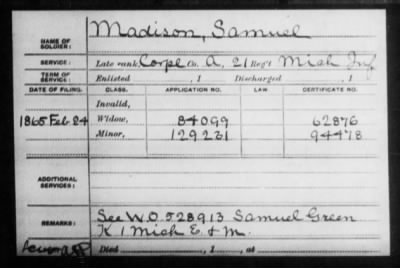 NAME OF SOLDIER: Madison, Samuel
SERVICE: Late rank, Corpl Co. A, 21 Reg't Mich Inf
TERM OF SERVICE: Enlisted , 1 Discharged , 1
DATE OF FILING. CLASS. APPLICATION NO. LAW CERTIFICATE NO.
Invalid,
1865 Feb 24 Widow, 84099 62876
Minor, 129231 94478
ADDITIONAL SERVICES:
REMARKS: See W.O. 528913 Samuel Green
K 1 Mich E. & M.
Died , 1 , at